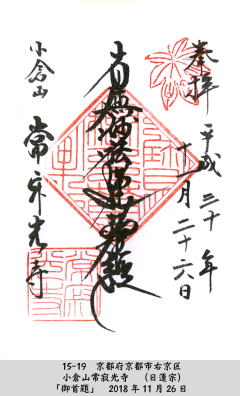 奉拝
平成三十年
十一月二十六日
南無妙法蓮華経
小倉山
常寂光寺
15-19　京都府京都市右京区
小倉山常寂光寺　（日蓮宗）
「御首題」　2018年11月26日